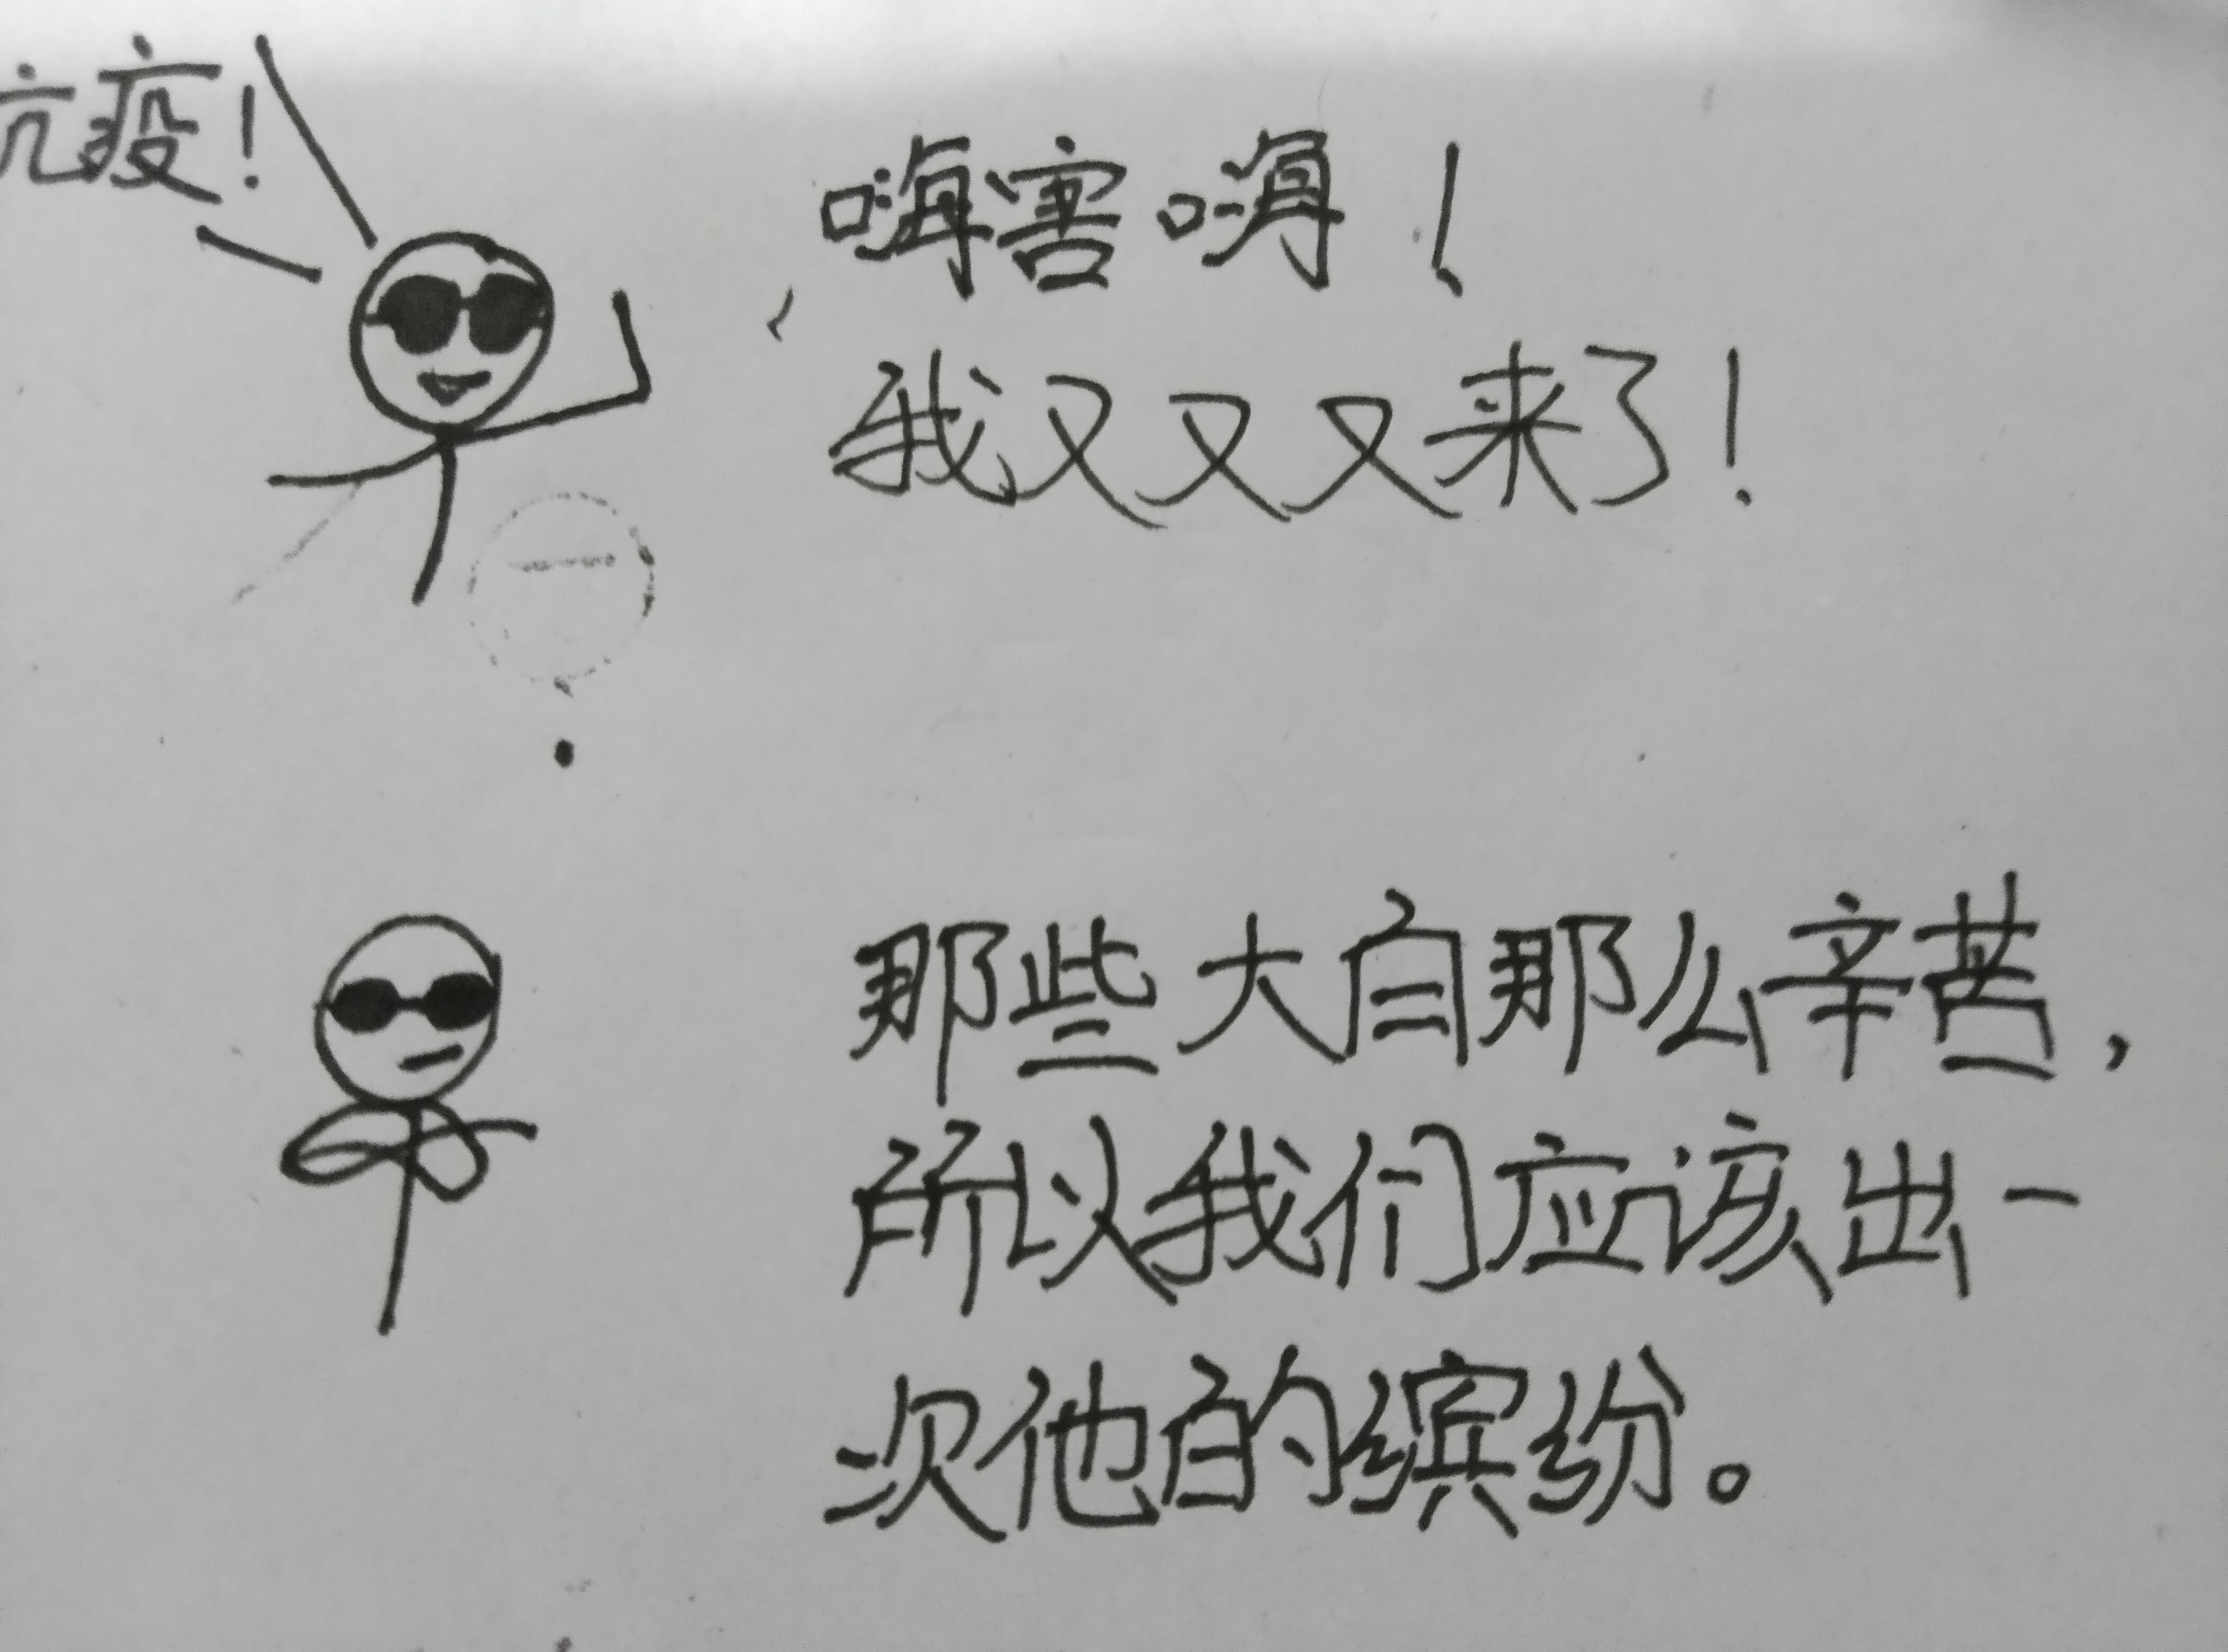 抗疫!
嗨害嗨!
我又又又来了!
那些大白那么辛苦,
所以我们应该出一
次他的缤纷。